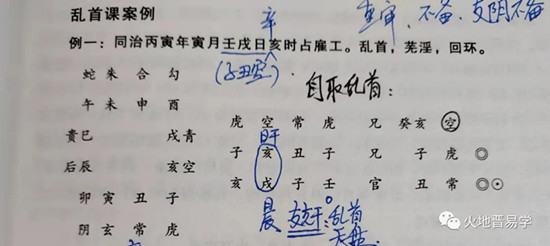 乱首课案例
辛
重审、不备、支阴不备
例一：同治丙寅年寅月壬戌日亥时占雇工。乱首，芜淫，回环。
(子丑空)
自取乱首：
蛇 朱 合 勾
午 未 申 酉 虎 空 常 虎 兄 癸亥 空
貴巳 戌青 子 亥 丑 子 兄 子 虎 ◎
后辰 亥空 亥 戌 子 壬 官 丑 常 ◎⊙
卯 寅 丑 子
阴 玄 常 虎
晨 支 干：乱首
火地晋易学